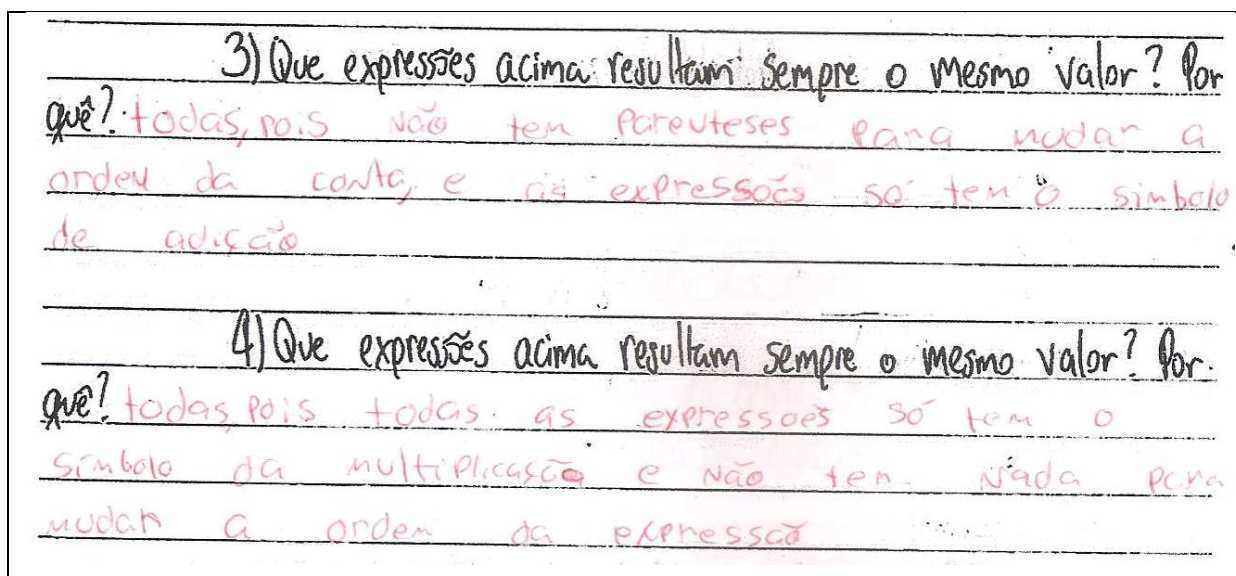 3) Que expressões acima resultam sempre o mesmo valor? Por
quê? todas, pois não tem parenteses para mudar a
ordem da conta, e as expressões só tem o simbolo
de adição
4) Que expressões acima resultam sempre o mesmo valor? Por
quê? todas, pois todas as expressoes só tem o
símbolo da multiplicasção e não tem nada para
mudar a ordem da expressão